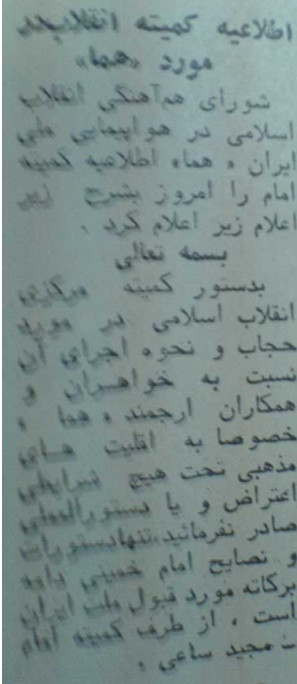 اطلاعیه کمیته انقلاب در
مورد «هما»
شورای هم‌آهنگی انقلاب
اسلامی در هواپیمایی ملی
ایران «هما» اطلاعیه کمیته
امام را امروز بشرح زیر
اعلام زیر اعلام کرد .
بسمه تعالی
بدستور کمیته مرکزی
انقلاب اسلامی در مورد
حجاب و نحوه اجرای آن
نسبت به خواهران و
همکاران ارجمند «هما»
خصوصا به اقلیت های
مذهبی تحت هیچ شرایطی
اعتراض و یا دستورالعملی
صادر نفرمائید، تنها دستورات
و نصایح امام خمینی دامه
برکاته مورد قبول ملت ایران
است ، از طرف کمیته امام
ـ مجید ساعی .